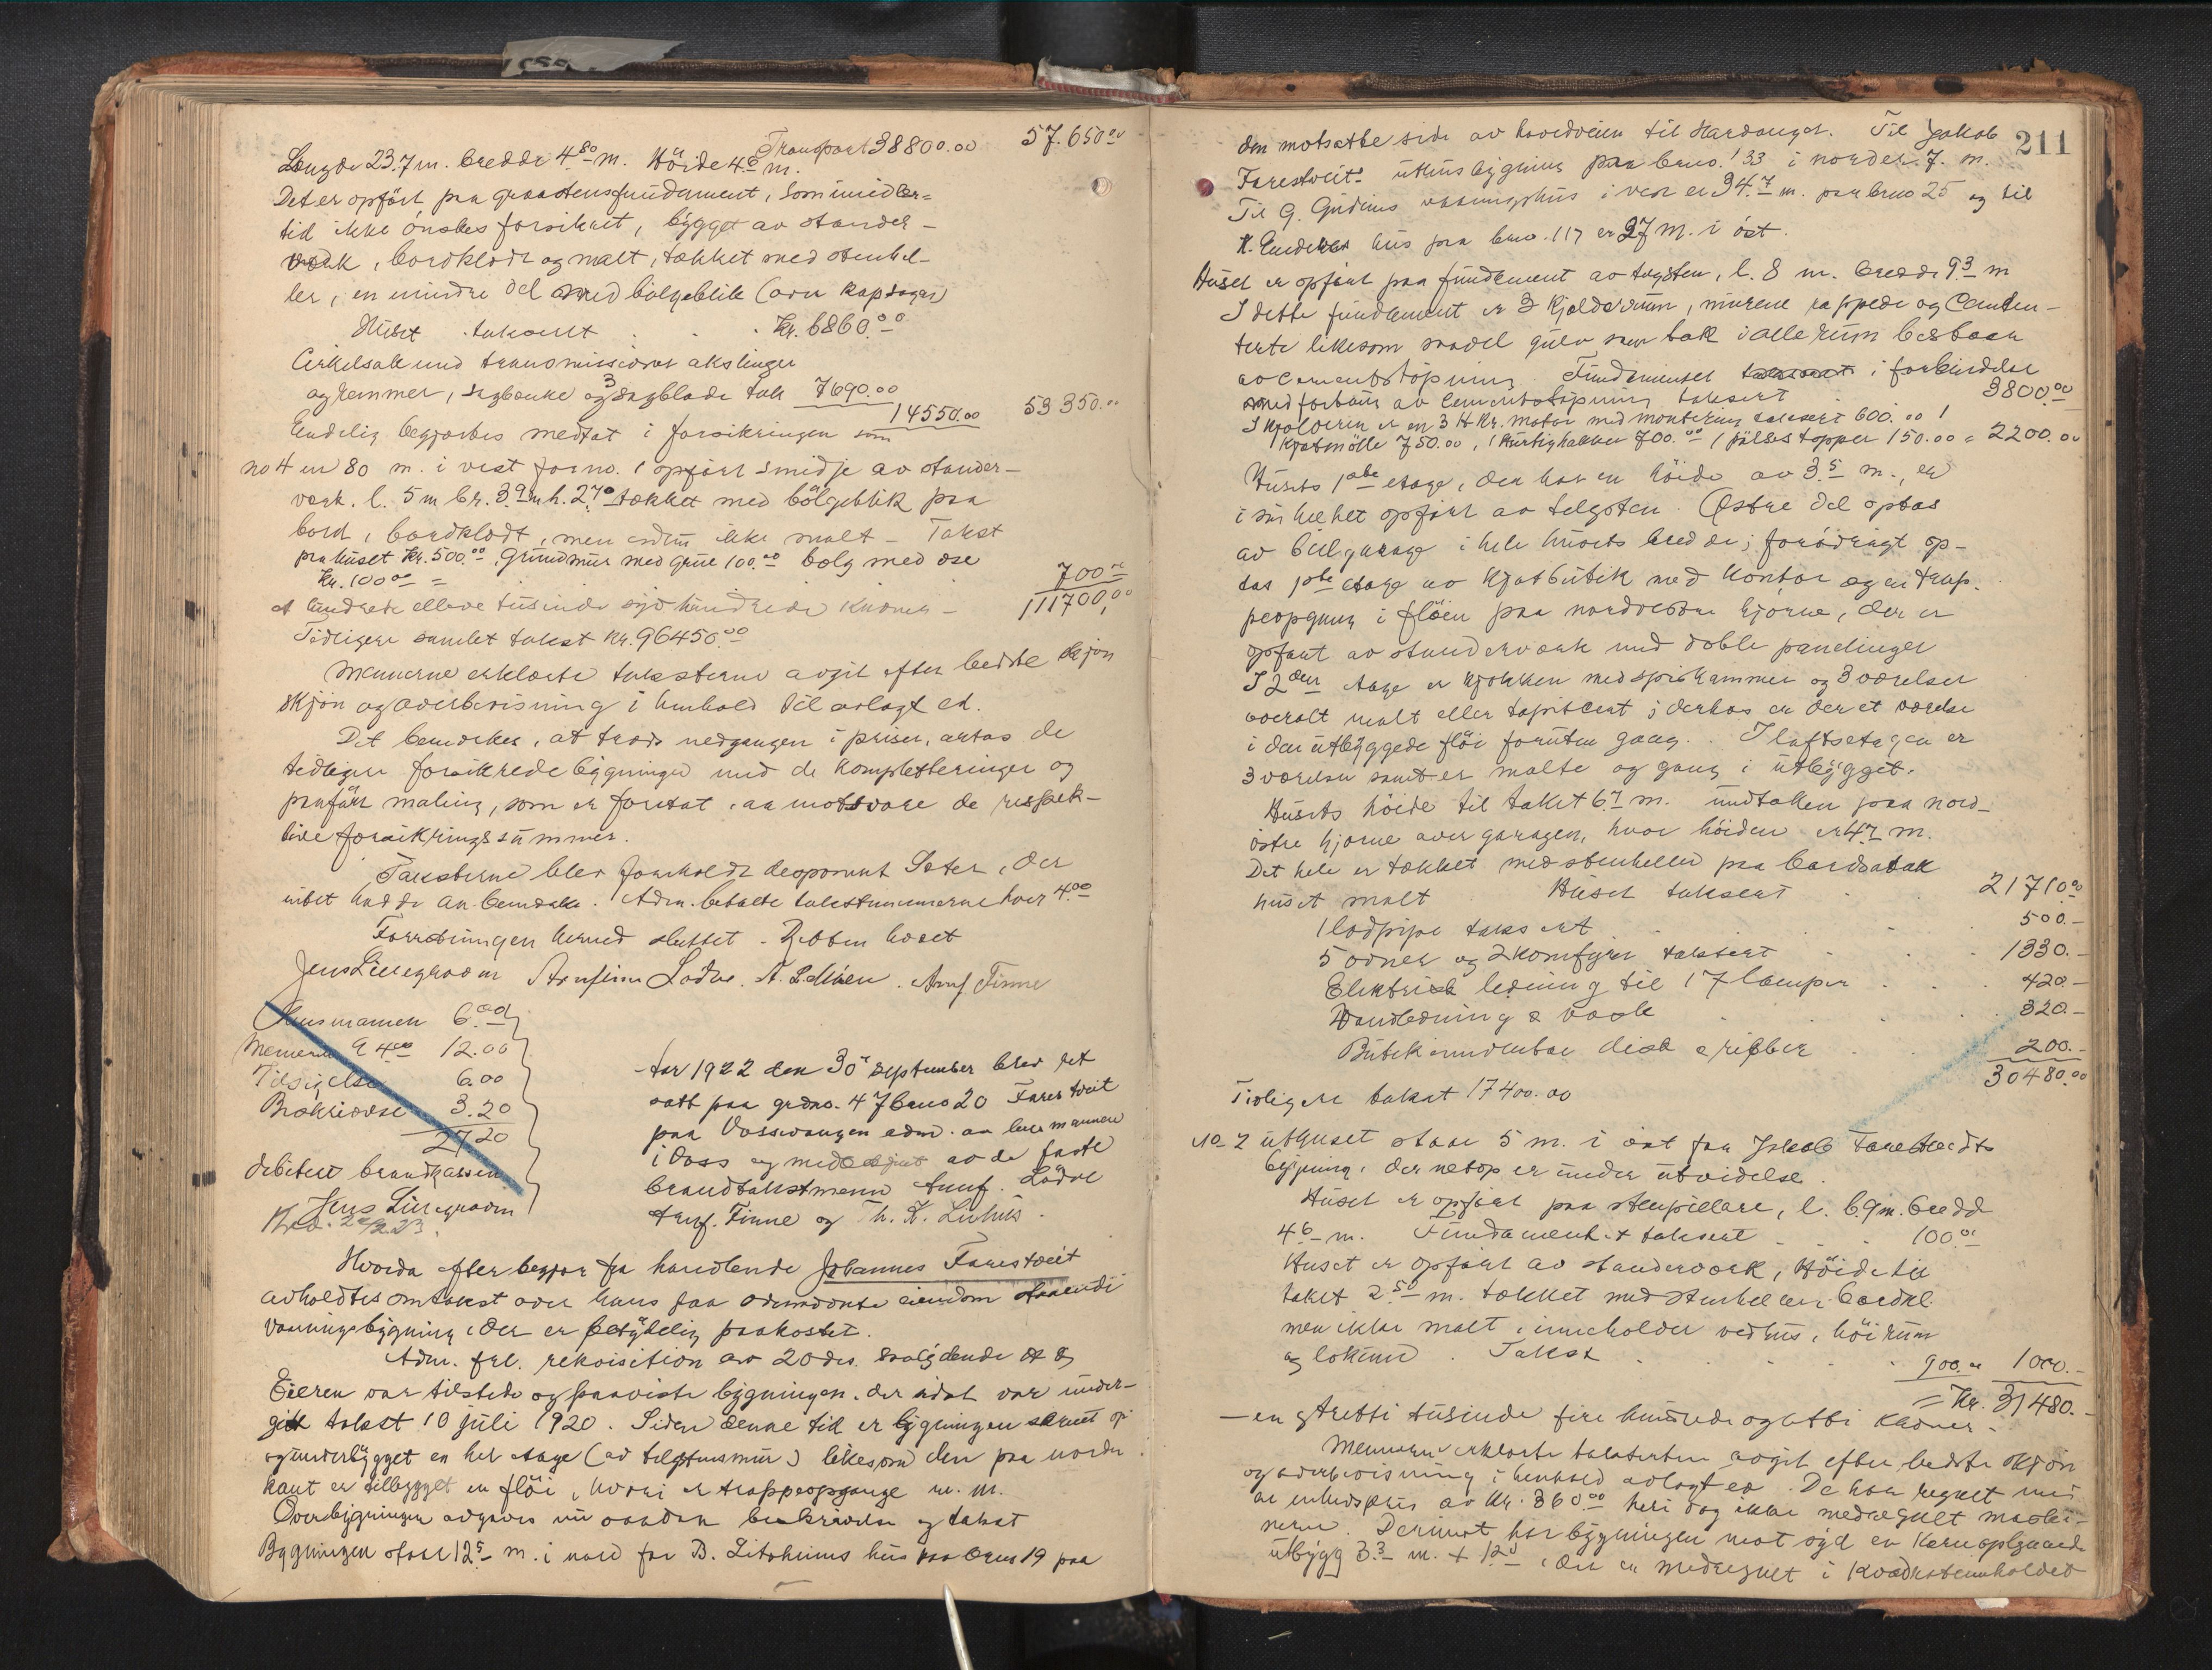 Transport 38800.00 57.650.00
Længde 23.7 m. bredde 4.80 m. Høide 4.6 m.
Det er opført paa graastensfundament, som imidler=
tid ikke ønskes forsikret, bygget av stender-
verk, bordklædt og malt, tækket med stenhel-
ler, en mindre del med bølgeblik (over kapsagen)
Huset taksert . . Kr. 6860.00
Cirkelsak med transmissioner akslinger
og remmer, sagbænke og 3 sagblade takst 7690.00
14550.00 53350.00
Endelig begjærtes medtat i forsikringen som
no 4 en 80 m. i vest for no. 1 opført smidje av stender-
verk. l. 5 m br. 3.9 m h. 2.70 tækket med bølgeblik paa
bord, bordklædt, men endnu ikke malt - Takst
paa huset Kr. 500.00. Grundmur med grue 100.00 bælg med ese
Kr. 100.00 = 700.00
et hundrede elleve tusinde syv hundrede kroner - 111700,00
Tidligere samlet takst Kr. 96450.00
Mennerne erklærte taksterne avgit efter bedste skjøn
skjøn og overbevisning i henhold til avlagt ed.
Det bemerkes, at trods nedgangen i priser, antas de
tidligere forsikrede bygninger med de kompletteringer og
paaført maling, som er foretat, aa motsvare de respek-
tive forsikringssummer.
Taksterne blev foreholdt deponent Sæter, der
intet hadde at bemerke. Adm. betalte takstmennerne hver 4.00
Forretningen hermed sluttet.
Jens Lillegraven Arnfinn Lødve. A. Finne
Mennene á 4.00 12.00
Tilsigelse 6.00
3.20
27.20
debitert brandkassen
Jens Lillegraven
Aar 1922 den 30 september blev ret
satt paa grdno. 47 brno 20 Farestveit
paa Vossevangen adm. av lensmannen
i Voss og med av de faste
brandtakstmenn Arnf. Lødve
Arnf. Finne og Th. K.
Hvorda efter begjær fra handlende Johannes Farestveit
avholdtes omtakst over hans paa ovennævnte eiendom staaende
vaaningsbygning, der er betydelig paakostet.
Adm. frl. rekvisition av 20 ds.
Eieren var tilstede og paaviste bygningen, der sidst var under-
git takst 10 juli 1920. Siden denne tid er bygningen skruet op
og underbygget en hel etage (av telgstensmur) likesom den paa nordre
kant er tilbygget en fløi, hvori er trappeopgange m. m.
Overbygningen avgaves nu saadan beskrivelse og takst
Bygningen staar 12.5 m. i nord for B. Litsheims hus paa brno 19 paa
211
den motsatte side av hovedveien til Hardanger. Til Jakob
Farestveits uthusbygning paa brno. 133 i norder 7. m.
Til G. Gjerdes vaaningshus i vest er 34.7 m. paa brno 25 og til
hus paa bno. 117 er 27 m. i øst.
Huset er opført paa fundament av tegsten, l. 8 m. bredde 9.3 m
I dette fundament er 3 kjælderrum, murene rappede og cemen-
terte likesom saavel gulv som tak i alle rum bestaar
av cementstøpning Fundamentet i forbindelse
med forbaug av cementstøpning taksert . 3800.00
I kjelderen er en 3 H.Kr. motor med montering taksert 600.00 1
kjøtmølle 750.00, 1 hurtighakker 700.00 1 pølsestopper 150.00 = 2200.00
Husets 1ste etage, den har en høide av 3.5 m., er
i sin helhet opført av telgsten. Østre del optas
av bilgarage i hele husets bredde; forøvrigt op-
tas 1ste etage av kjøtbutik med kontor og en trap-
peopgang i fløien paa nordvestre hjørne, der er
opført av stenderverk med doble panelinger
I 2den etage er kjøkken med spiskammer og 3 værelser
overalt malt eller tapetsert; derhos er der et værelse
i den utbyggede fløi foruten gang. I loftsetagen er
3 værelser samt er malte og gang i utbygget.
Husets høide til taket 6.7 m. undtaken paa nord-
østre hjørne over garagen, hvor høiden er 4.2 m.
Det hele er tækket med stenheller paa bordsatak
huset malt Huset taksert . 21710.00
1 lodpipe taksert . . . 500.-
5 ovner og 2 komfyrer taksert . . . 1330.-
Elektrisk ledning til 17 lamper . . . 420.-
Vandledning & vask . . . 320.-
Butikinnventar disk & reoler . . 200.-
30480.00
Tidligere takst 17400.00
No 2 uthuset staar 5 m. i øst fra Jakob Farestveits
bygning, der netop er under utvidelse.
Huset er opført paa stenpillare, l. 6.9 m. bredd
4.6 m. Fundamentet taksert . . 100.00
Huset er opført av stenderverk, Høide til
taket 2.50 m. tækket med stenheller. bordkl.
men ikke malt, inneholder vedhus, høirum
og lokum. Takst . . . 900.00 1000.-
= Kr. 31480.-
- en og tretti tusinde fire hundrede og otti kroner -
Mennerne erklærte taksterne avgit efter bedste skjøn
og overbevisning i henhold avlagt ed. De har regnet med
en enhedspris av Kr. 360.00 heri dog ikke medregnet maski-
nerne. Derimot har bygningen mot syd en karnopplgnende
utbygg 3.3 m. + 1.20, der er medregnet i kvadratinnholdet